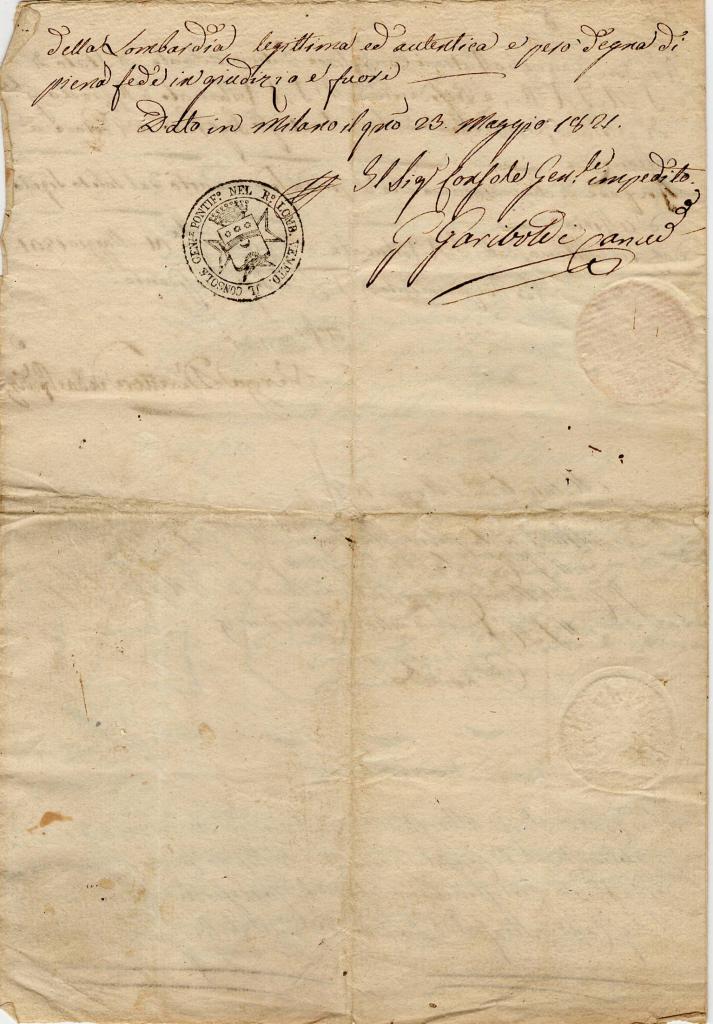 della Lombardia, legittima ed autentica e però degna di
piena fede in giudizio e fuori
Dato in Milano il gno 23. Maggio 1821.
Il Sigr Console Genle impedito
G. Gariboldi Cance
CONSOLE GENLE PONTIFO NEL RO LOMB. VENETO. IL